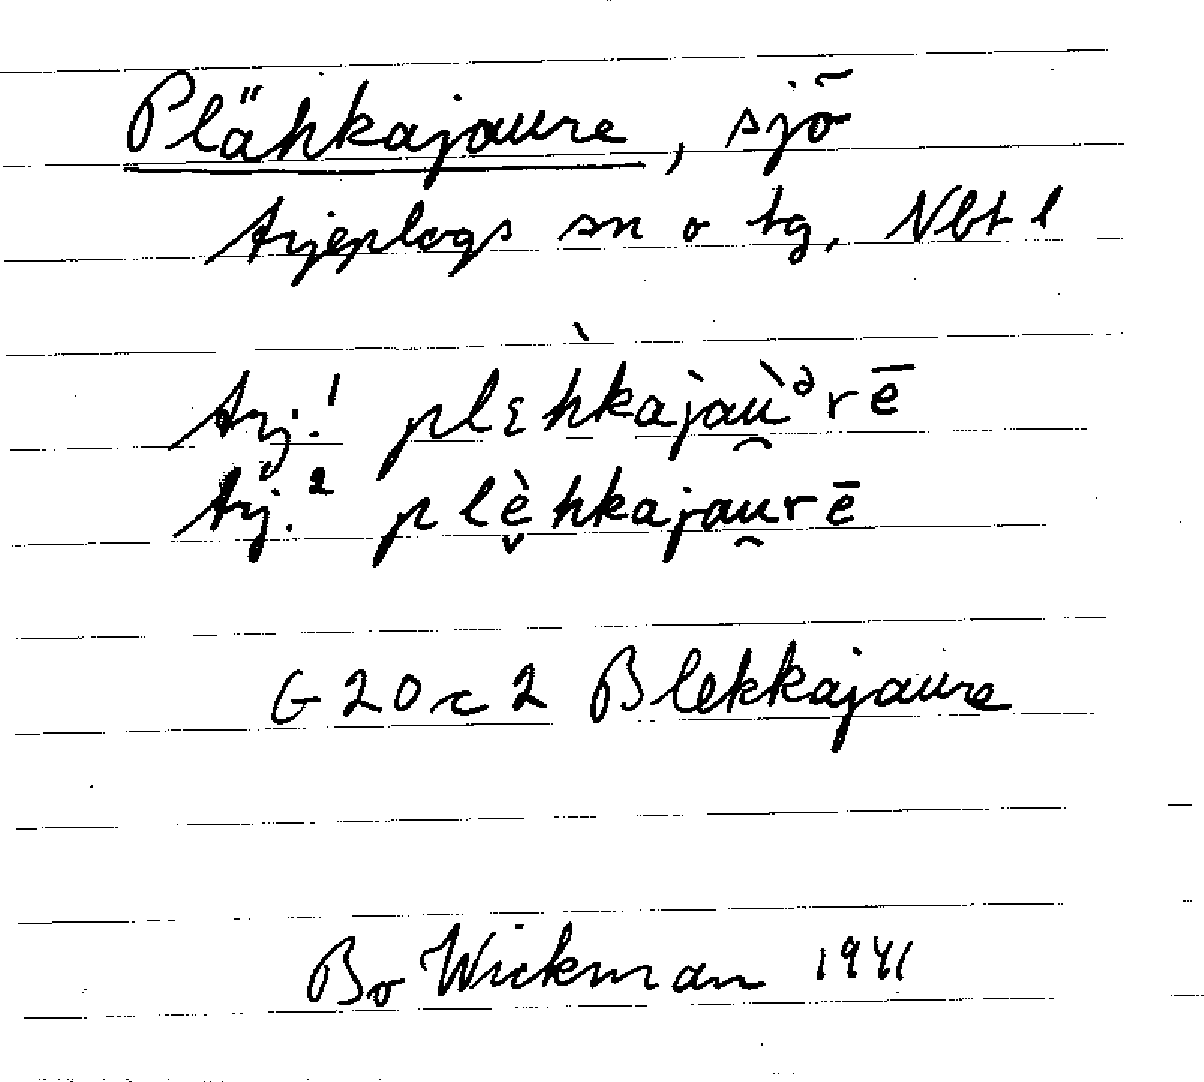 Plähkajaure, sjö
Arjeplogs sn o tg, Nbt l
Arj.¹ plɛ̀hkajàù̯ᵊrē
Arj.² plè̬hkajau̯rē
G 20 c 2 Blekkajaure
Bo Wickman 1941